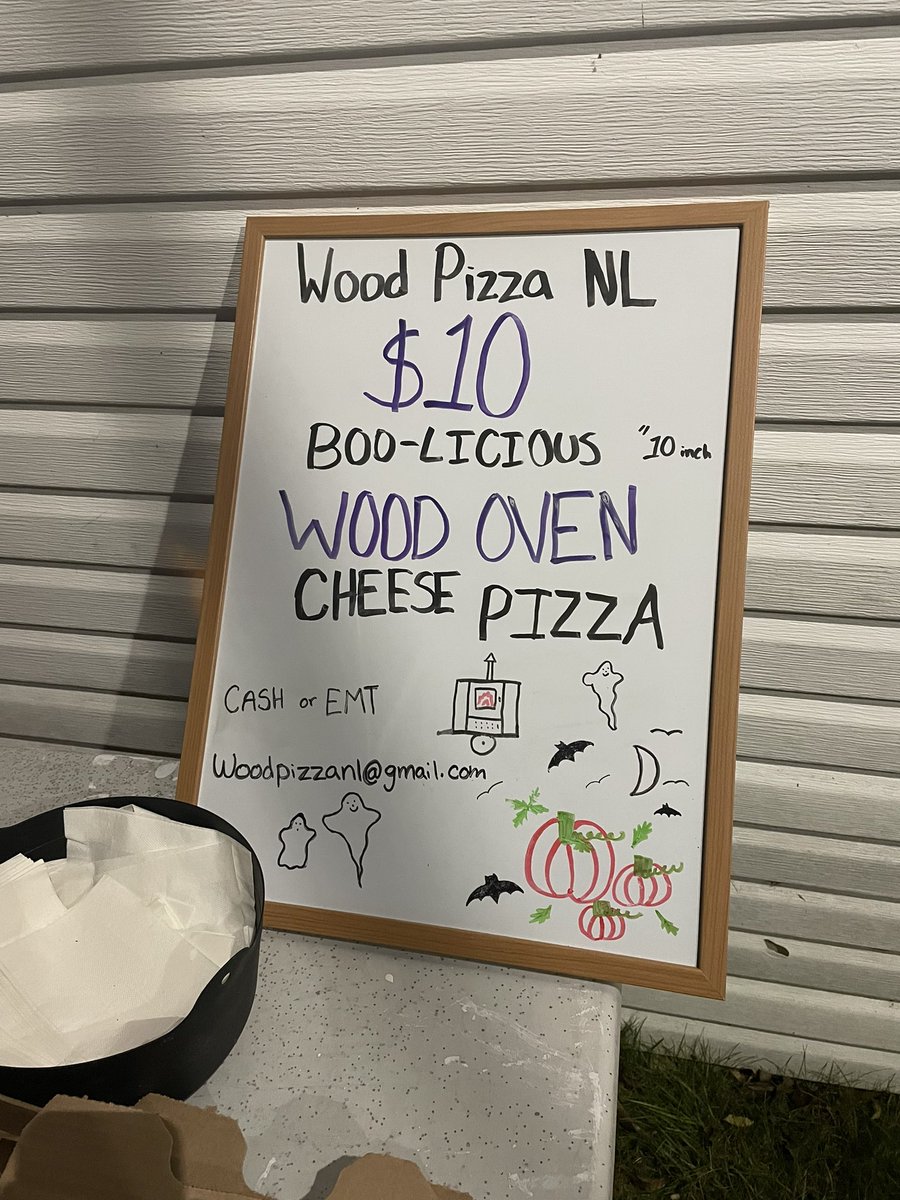 Wood Pizza NL
$10
BOO-LICIOUS "10 inch
WOOD OVEN
CHEESE PIZZA
CASH or EMT
Woodpizzanl@gmail.com